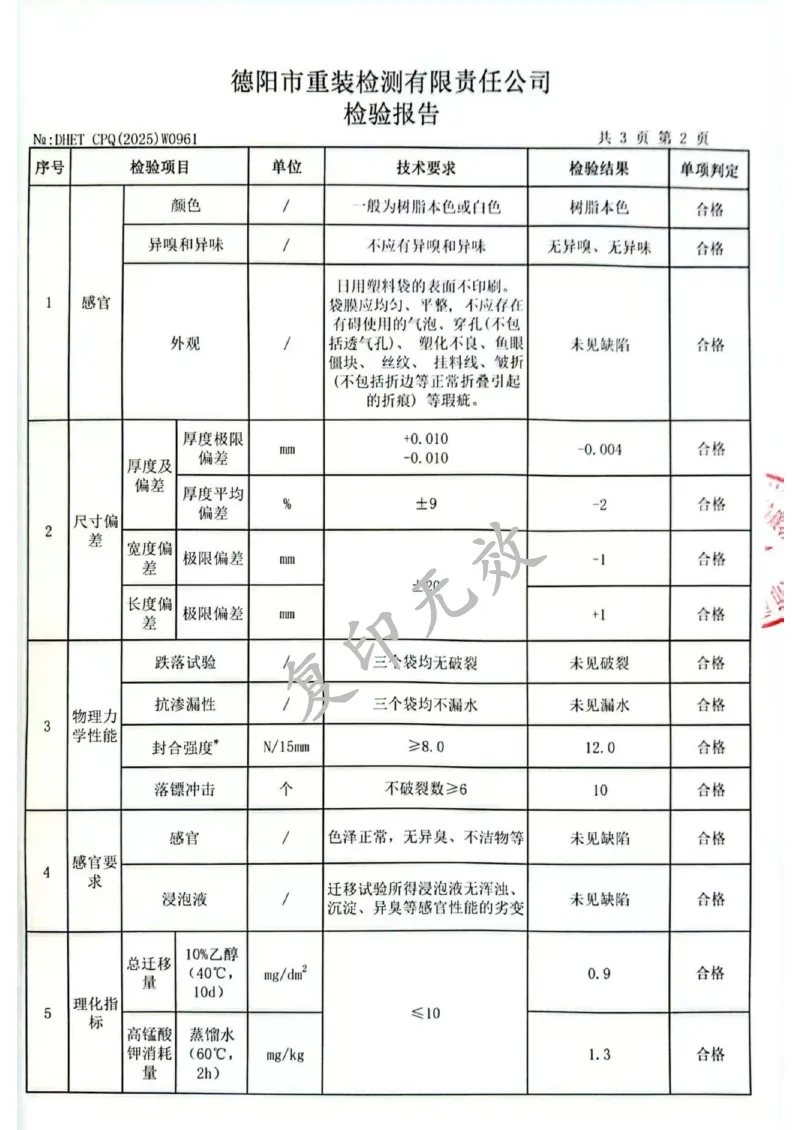 德阳市重装检测有限责任公司
检验报告
№:DHET CPQ(2025)W0961
共 3 页 第 2 页
序号 检验项目 单位 技术要求 检验结果 单项判定
1 感官 颜色 / 一般为树脂本色或白色 树脂本色 合格
异嗅和异味 / 不应有异嗅和异味 无异嗅、无异味 合格
外观 / 日用塑料袋的表面不印刷。
袋膜应均匀、平整，不应存在
有碍使用的气泡、穿孔(不包
括透气孔)、 塑化不良、鱼眼
僵块、 丝纹、 挂料线、皱折
(不包括折边等正常折叠引起
的折痕) 等瑕疵。
未见缺陷 合格
2 尺寸偏
差
厚度及
偏差
厚度极限
偏差
mm
+0.010
-0.010
-0.004 合格
厚度平均
偏差
% ±9 -2 合格
宽度偏
差
极限偏差 mm ±20 -1 合格
长度偏
差
极限偏差 mm +1 合格
3 物理力
学性能
跌落试验 / 三个袋均无破裂 未见破裂 合格
抗渗漏性 / 三个袋均不漏水 未见漏水 合格
封合强度* N/15mm ≥8.0 12.0 合格
落镖冲击 个 不破裂数≥6 10 合格
4 感官要
求
感官 / 色泽正常，无异臭、不洁物等 未见缺陷 合格
浸泡液 / 迁移试验所得浸泡液无浑浊、
沉淀、异臭等感官性能的劣变
未见缺陷 合格
5 理化指
标
总迁移
量
10%乙醇
(40℃，
10d)
mg/dm² ≤10 0.9 合格
高锰酸
钾消耗
量
蒸馏水
(60℃，
2h)
mg/kg 1.3 合格
复印无效